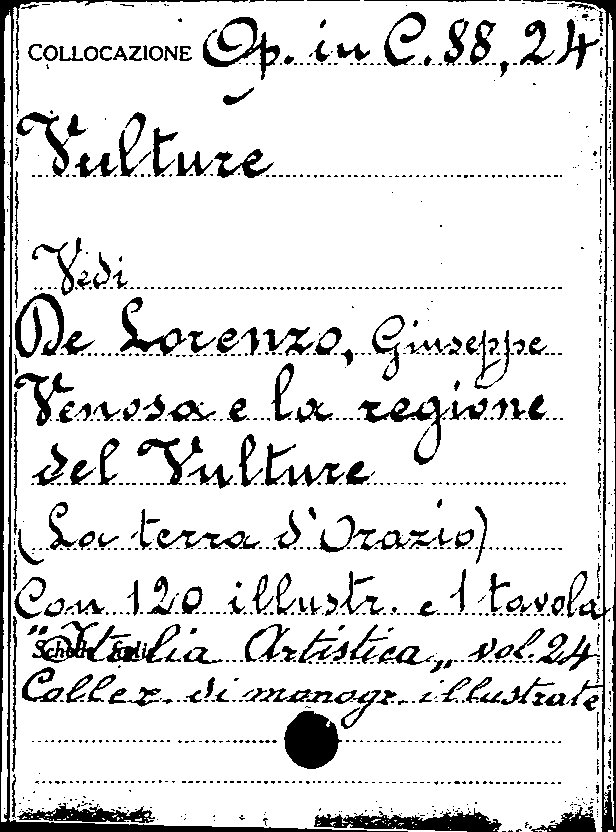 COLLOCAZIONE Op. in C. 88, 24
Vulture
Vedi
De Lorenzo, Giuseppe
Venosa e la regione
del Vulture
(La terra d'Orazio)
Con 120 illustr. e 1 tavola
"Italia Artistica„ vol. 24
Collez. di monogr. illustrate